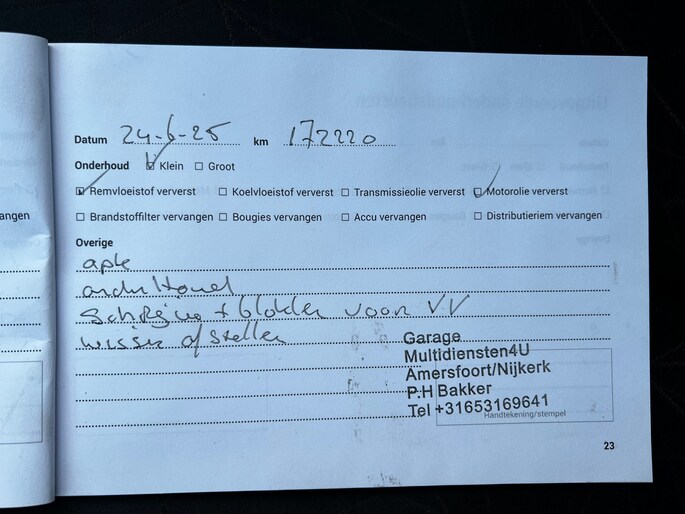 Datum 24-6-25 km 172220
Onderhoud Klein Groot
Remvloeistof ververst Koelvloeistof ververst Transmissieolie ververst Motorolie ververst
angen
Brandstoffilter vervangen Bougies vervangen Accu vervangen Distributieriem vervangen
Overige
apk
onderhoud
Schijven + blokken voor VV
wissen afstellen
Garage
Multidiensten4U
Amersfoort/Nijkerk
P.H Bakker
Tel +31653169641
Handtekening/stempel
23